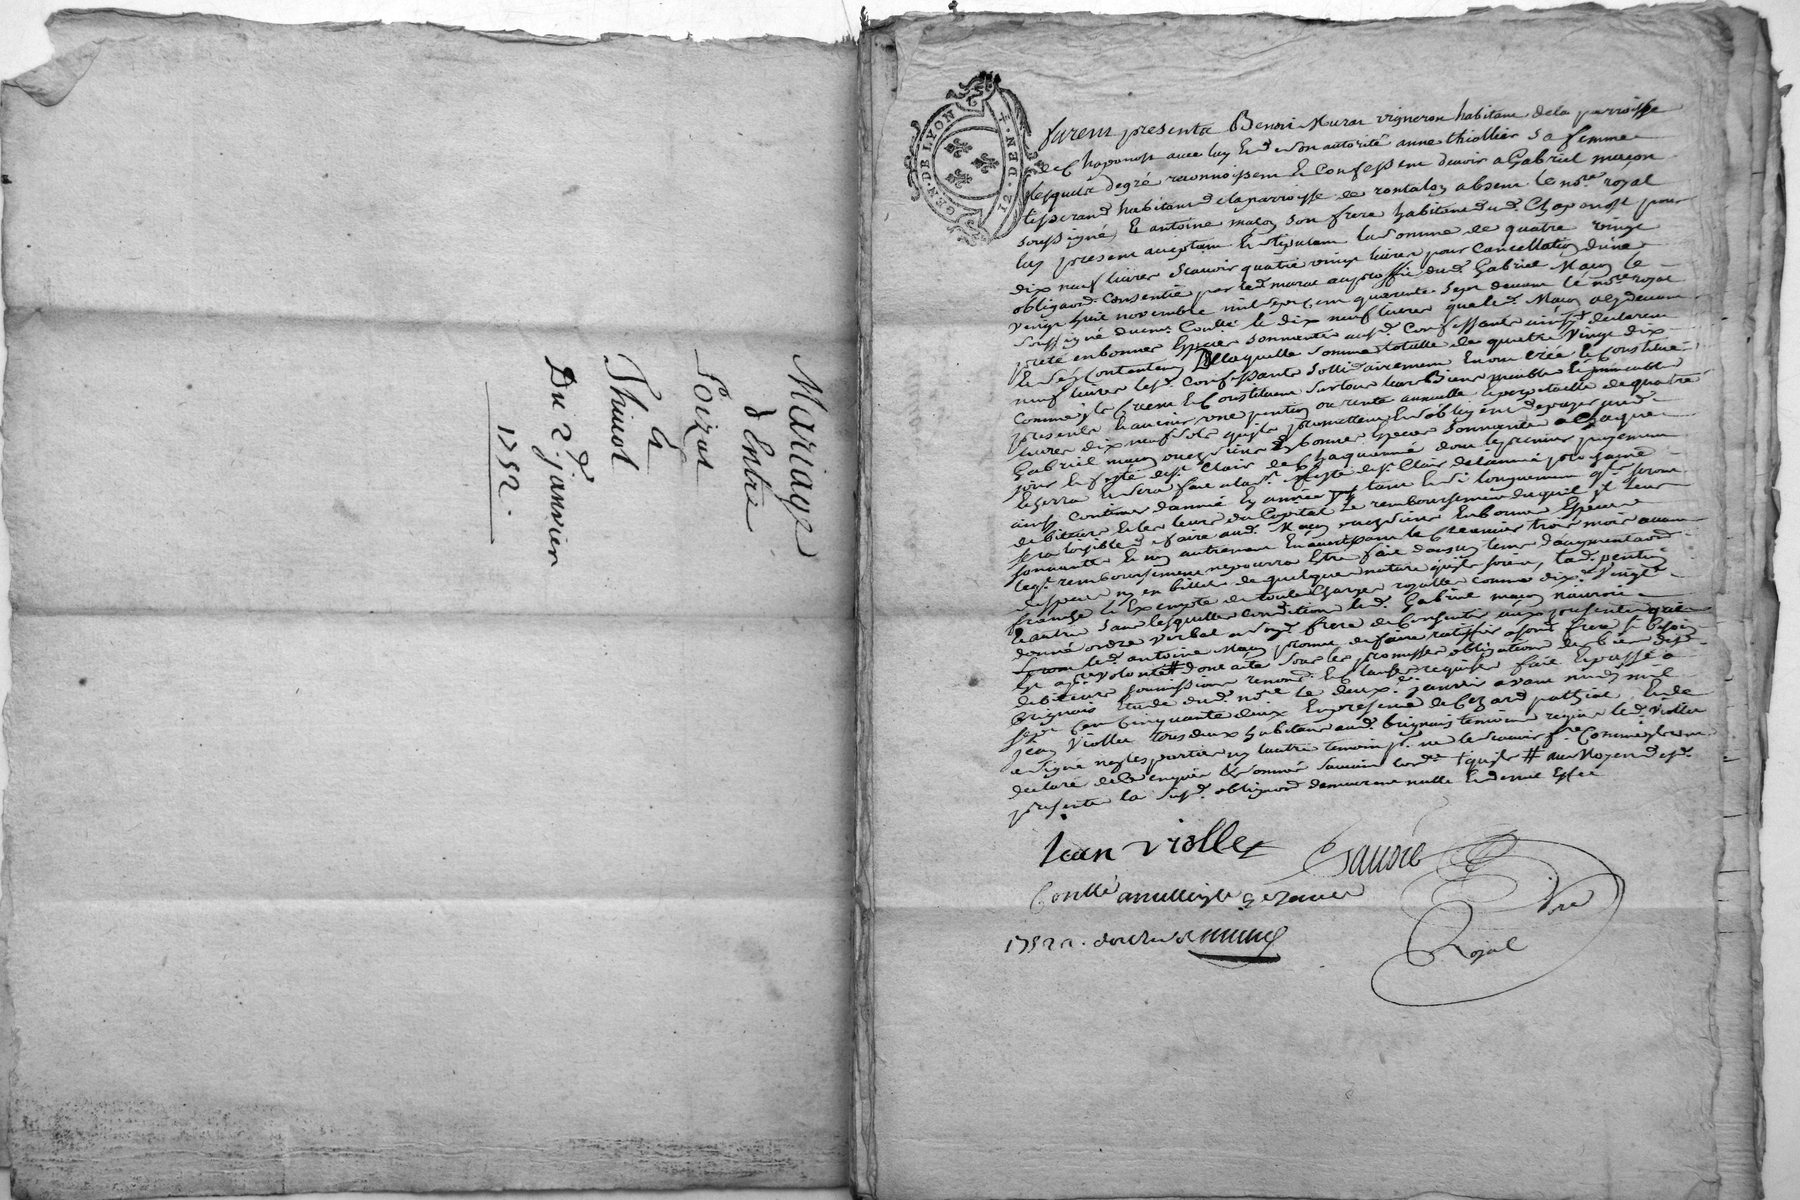 Mariage
d'Entre
Loizat
&
Thiuot
Du 2.d janvier
1752.
GEN. DE LYON
12. DEN. T.
furent presents Benoit Murat vigneron habitant de la parroisse
de Chaponost avec luy et de son autorité anne thiollier sa femme
lesquels de gré reconnoissent et Confessent devoir a Gabriel macon
tisserand habitant de la parroisse de rontalon absent le no.re royal
soussigné, et antoine macon son frere habitant dud. Chaponost pour
luy present acceptant et stipulant la somme de quatre vingt
dix neuf livres scavoir quatre vingt livres pour Cancellation d'une
obligaon. Consentie par led. murat au proffit dud. Gabriel Macon le
vingt huit novembre mil sept Cent quarente sept devant le no.re royal
soussigné duem. Contlé et dix neuf livres que led. Macon a
preté en bonnes especes sonnantes ausd. Confessants ainsy declarent
et sen Contentent De laquelle somme totalle de quatre vingt dix
neuf livres lesd. Confessants sollidairement En ont créé et Constitué
Comme ils Creent et Constituent sur tous leurs Biens meubles et immeubles
presents et avenir une pention ou rente annuelle et perpetuelle de quatre
livres dix neuf sols quils promettent et sobligent de payer aud.
Gabriel macon ou es siens En bonnes especes sonnantes a Chaque
jour et feste de st. Clair de Chaque année dont le premier payement
Echerra et sera fait a la d. feste de st. Clair de lannée prochaine
ainsy Continuer d'année En année tant et si longuement qils seront
debiteurs et les leurs du Capital Le remboursement duquel il leur
sera loisible de faire aud. Macon ou es siens En bonnes Especes
sonnantes et non autrement En avertissant le Creancier trois mois avant
leq.l remboursement ne pourra Estre fait dans un tems d'augmentaon
despeces ny en billets de quelque nature quils soient, lad. pention
franche et Exempte de toutes Charges royalles comme dix.e vingt.e
et autres sans lesquelles condition led. Gabriel macon nauroit
donné ordre verbal a son frere de Consentir aux presentes que
led. antoine Macon promet de faire ratiffier a sond. frere si besoin
est a sa volonté # dont acte sous les promesses obligations de biens desd.
debiteurs soumissions renond. et Clauses requises fait et passé a
Brignais Etude dud. no.re le deux.e janvier avant midy mil
sept Cent Cinquante deux En presence de Cezard pathiot Et de
Jean Viollet tous deux habitans aud. Brignais temoins requis led. Viollet
a signé non les parties ny lautre temoin p.r ne le scavoir f.re Comme ils ont
declaré de Ce enquis et sommés suivant lord.ce # au Moyen desd.
presentes la susd. obligaon demeurera nulle et de nul Effet
Jean viollet
Gaudié
Contlé a millery le 9 janvier
1752 R. douze s.
No.re
Royal